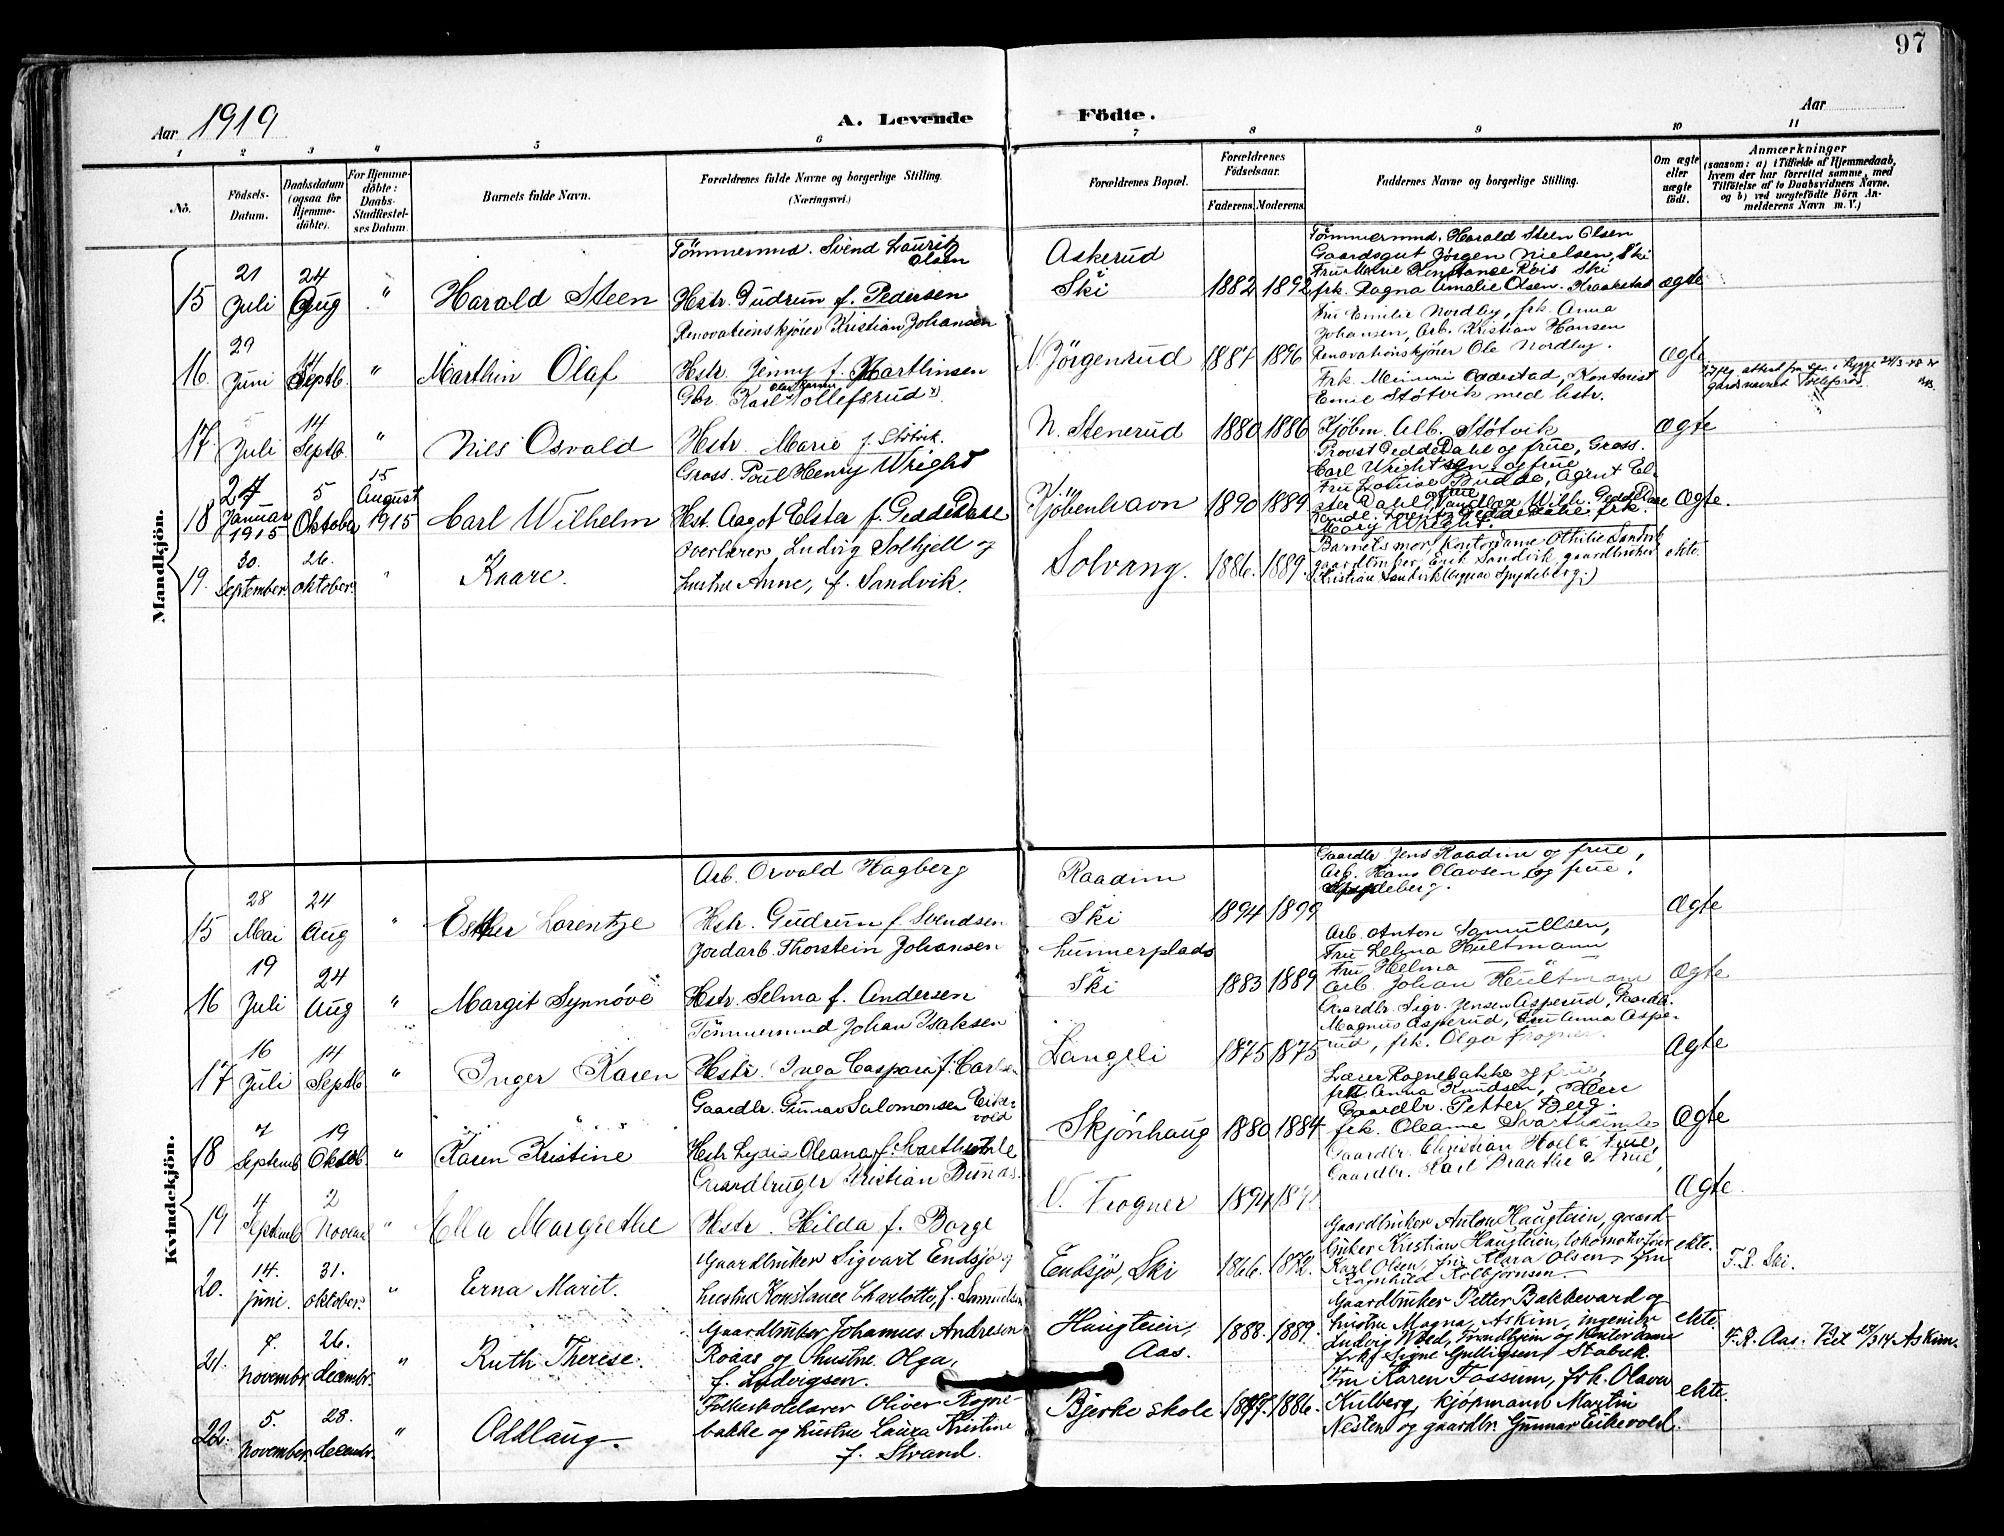 97
Aar 1919
A. Levende Födte.
Aar
1 2 3 4 5 6 7 8 9 10 11
No.
Födsels-Datum.
Daabsdatum (ogsaa for Hjemmedöbte).
For Hjemmedöbte: Daabs-Stadfæstelses Datum.
Barnets fulde Navn.
Forældrenes fulde Navne og borgerlige Stilling. (Næringsvei.)
Forældrenes Bopæl.
Forældrenes Födselsaar.
Faderens. Moderens.
Faddernes Navne og borgerlige Stilling.
Om ægte eller uægte födt.
Anmærkninger
(saasom: a) i Tilfælde af Hjemmedaab, hvem der har forrettet samme, med Tilföielse af to Daabsvidners Navne, og b) ved uægtefödte Börn Anmelderens Navn m. V.)
Mandkjön.
15 21 Juli 24 Aug " Harald Steen
Tömmermnd. Svend Lauritz Olsen
Hstr. Gudrun f. Pedersen
Askerud Ski 1882 1892
Tömmermnd. Harald Steen Olsen
Gaardsgut Jørgen Nielsen, Ski
Fru Marie Konstanse Röis Ski
frk. Ragna Amalie Olsen. Kraakstad
ægte
16. 29 Juni 14 Septb. " Marthin Olaf
Renovationskjörer Kristian Johansen
Hstr. Jenny f. Martinsen
N. Jörgenrud 1887 1896
Fru Emilie Nordby, frk. Anna
Johansen, Arb. Kristian Hansen
Renovationskjörer Ole Nordby.
ægte
17. 5 Juli 14 Septb. " Nils Osvald
Gbr. Karl Tollefsrud x)
Hstr. Marie f. Stötvik.
N. Stenerud 1880 1886
Frk. Mimmi Oddestad, Kontorist
Emil Stötvik med hstr.
Kjöbm. Alb. Stötvik
ægte
18 27 Januar 1915 5 Oktober 15 August 1915 Carl Wilhelm
Gross. Poul Henry Wright
Hst. Aagot Elster f. Gedde Dahl
Kjöbenhavn 1890 1889
Provst Gedde Dahl og frue, Gross.
Carl Wright sen. og frue
Fru Lovise Budde, Agnt El-
ster Dahl
Mary Wright.
Ægte.
19. 30. September 26. oktober. " Kaare.
Overlærer Ludvig Solhjell og
hustru Anne, f. Sandvik.
Solvang. 1886. 1889.
Barnets mor, Kontordame Othilie Sandvik
gaardbruker Erik Sandvik, gaardbruker
Kristian Sandvik (Spydeberg.)
ekte.
Kvindekjön.
15 28 Mai 24 Aug " Esther Lorentze
Arb. Osvald Hagberg
Hstr. Gudrun f. Svendsen
Raadim Ski 1894 1899
Gaardbr. Jens Raadim og frue,
Arb. Hans Olavsen og frue,
Spydeberg.
Ægte
16 19 Juli 24 Aug " Margit Synnöve
Jordarb. Thorstein Johansen
Hstr. Selma f. Andersen
hunnerplads Ski 1883 1889
Arb. Anton Samullsen,
Fru Helma Hultmann
Fru Helma —
Arb. Johan Hultmann
Ægte
17 16 Juli 14 Septb " Inger Karen
Tömmermnd Johan Isaksen
Hstr. Inga Caspara f. Carlsen
Langeli 1875 1875
Gaardbr. Sigv. Jensen Asperud, Gaardb.
Magnus Asperud, Fru Anna Aspe-
rud, frk. Olga Frogner.
Ægte
18 7 Septemb 19 Oktob. " Karen Kristine
Gaardbr. Gunnar Salomonsen Eikevold
Hstr Lydia Oleana f. Svartheimle
Skjönhaug 1880 1884
Lærer Rognebakke og frue,
frk. Anna Knudsen,
Gaardbr. Petter Berg.
frk. Oleanne Svartheimle
Ægte
19 4 Septemb 2 Novem " Ella Margrethe
Gaardbruger Kristian Bunæs.
Hstr. Hilda f. Borge
N. Frogner 1894
Gaardbr. Christian Hoel & frue,
Gaardbr. Karl Braathe & frue,
Ægte.
20. 14. juni. 31. oktober. " Erna Marit.
Gaardbruker Sigvart Endsjø og
hustru Konstance Charlotte, f. Samuelsen
Endsjö, Ski 1866. 1872.
Gaardbruker Anton Haugteien, gaard-
bruker Kristian Haugteien, lokomotivförer
Karl Olsen, fru Klara Olsen, fru
Ragnhild Kolbjörnsen.
ekte.
F. R. Ski.
21. 7. novembr. 26. decembr. " Ruth Therese.
Gaardbruker Johannes Andresen
Roaas og hustru Olga,
f. Ludvigsen.
Haugteien, Aas. 1888. 1889.
Gaardbruker Petter Bakkevard og
hustru Magna, Askim, ingeniør
Ludvig Wold, Trondhjem og Kontordame
frk. Signe Gulliksen Stabæk.
ekte.
F. R. Aas. Viet 27/3 14 Askim.
22. 5. november. 28. decembr. " Oddlaug.
Folkeskolelærer Oliver Rogne-
bakke og hustru Laura Kristine
f. Strand.
Bjerke skole 1879. 1886.
Fru Karen Fossum, frk. Olava
Kulberg, kjöpmand Martin
Nesten og gaardbr. Gunnar Eikevold.
ekte.